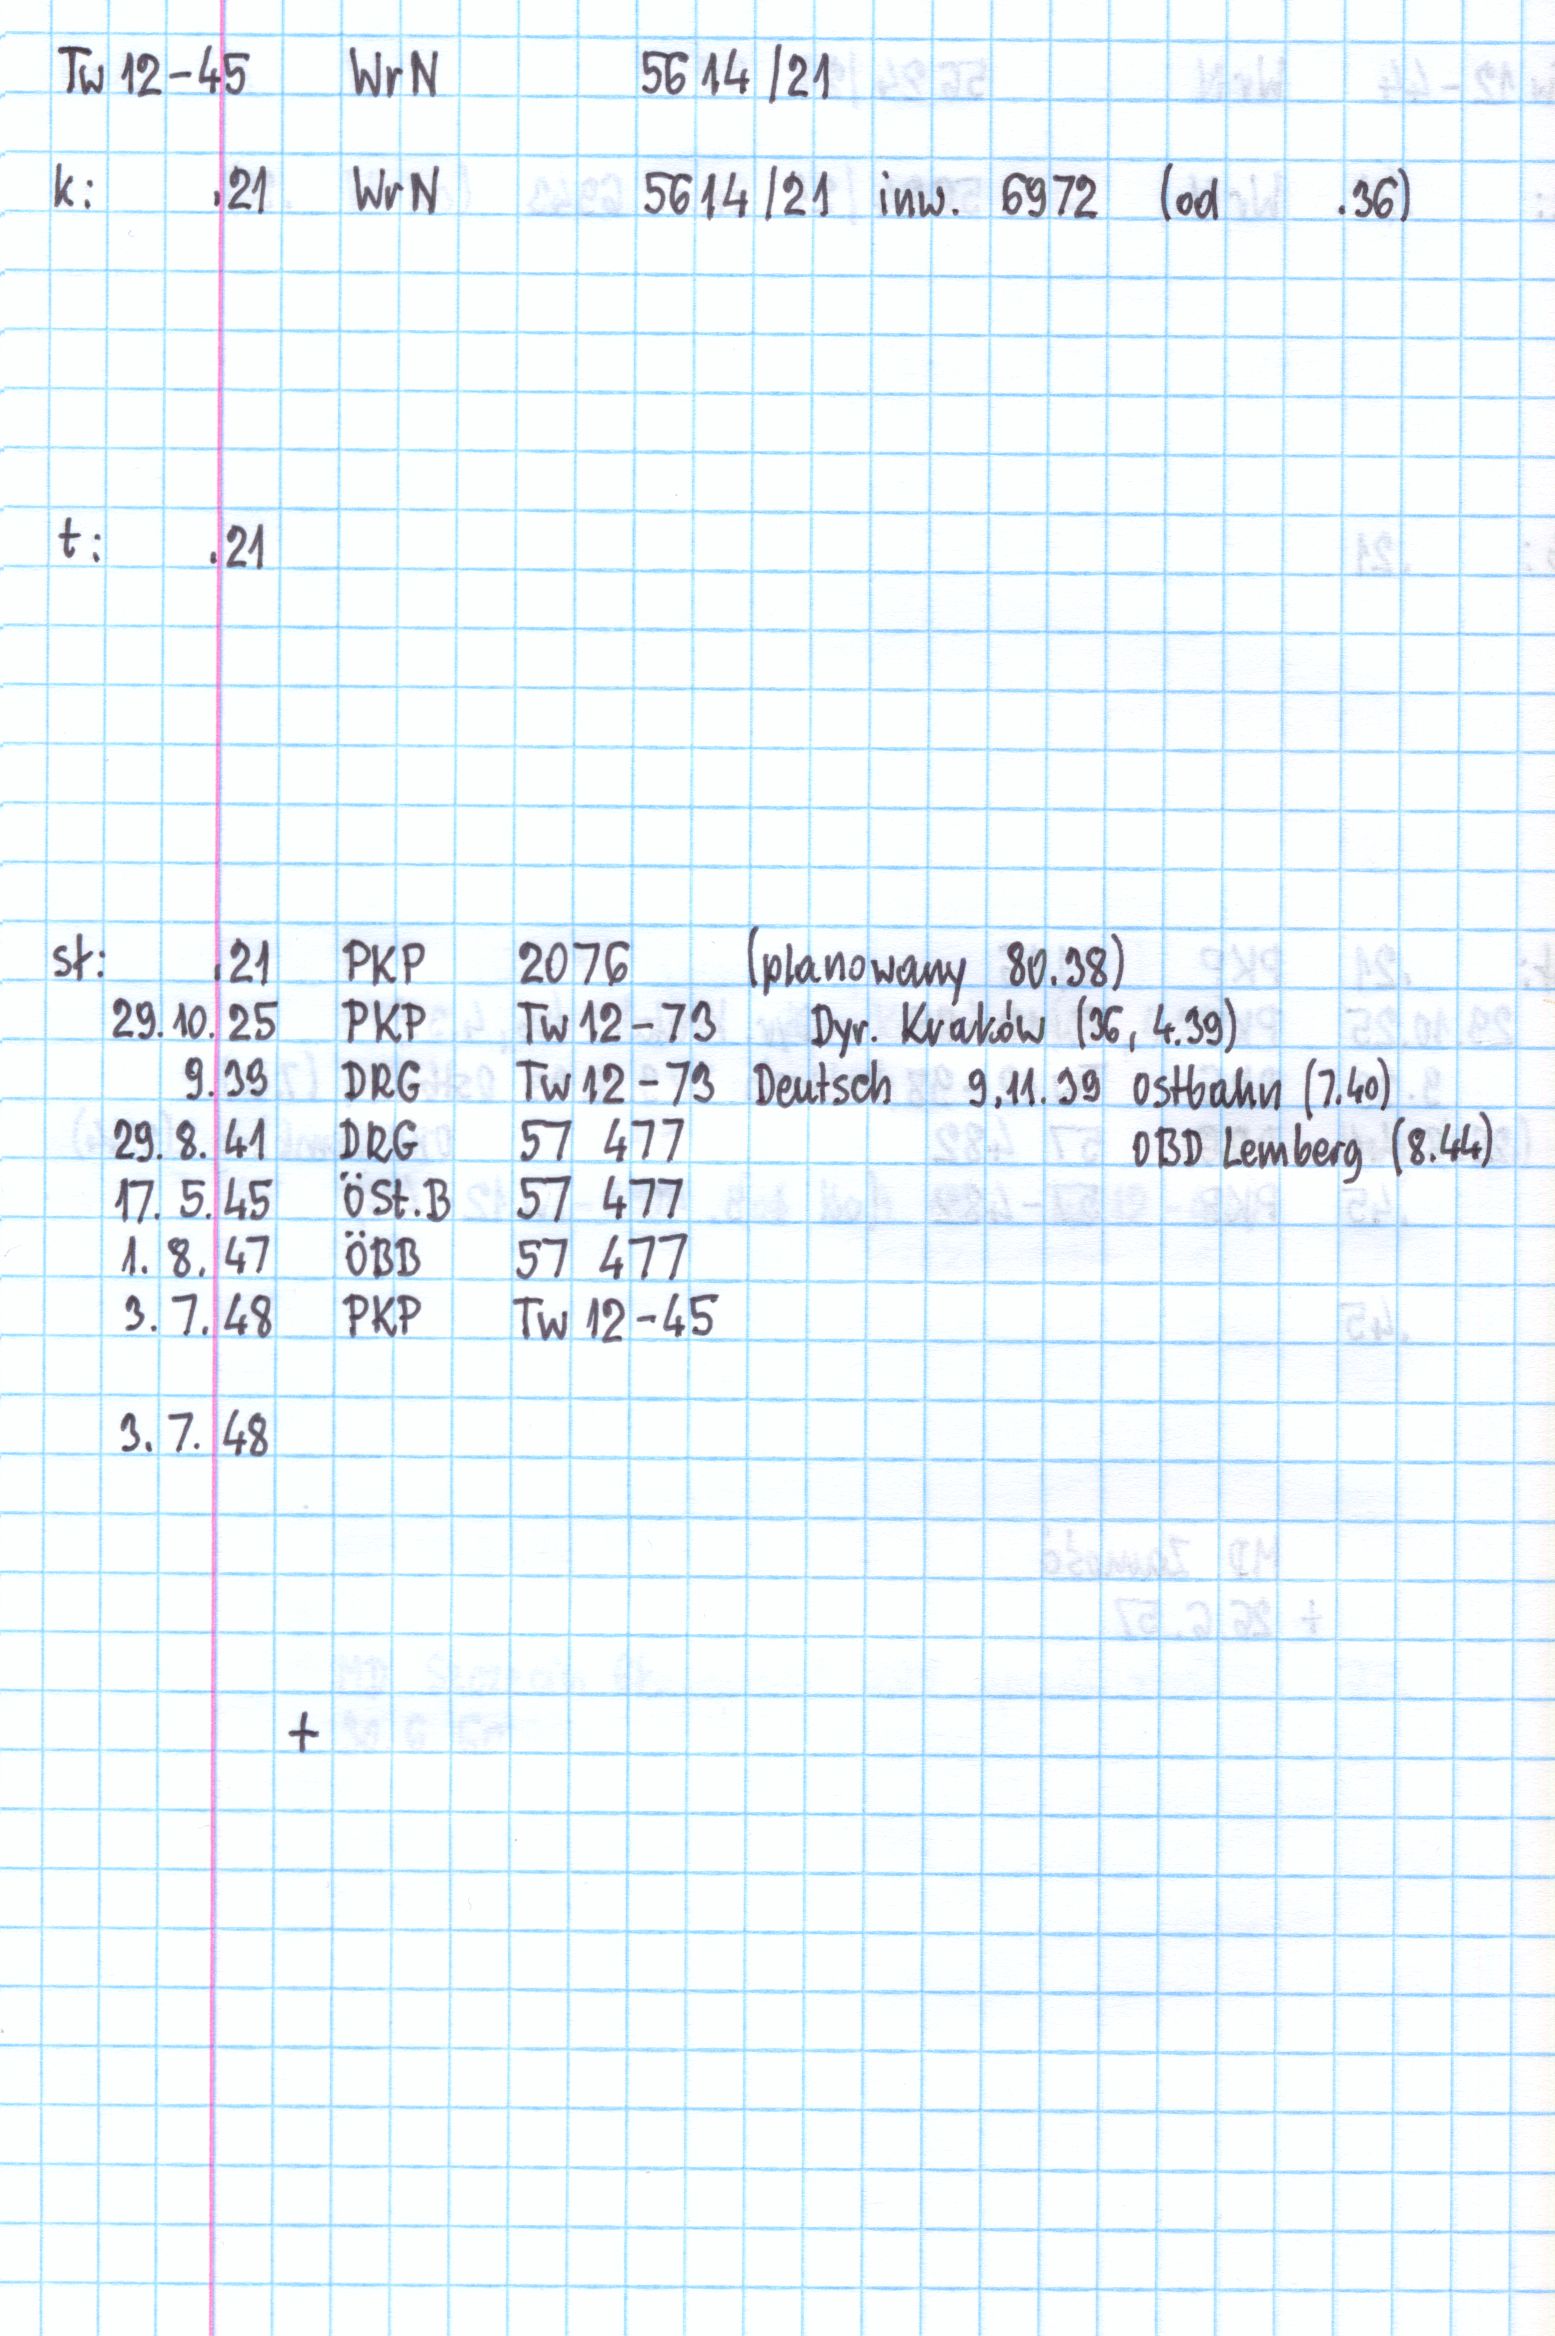 Tw 12-45 WrN 5614/21
k: .21 WrN 5614/21 inw. 6972 (od .36)
t: .21
st: .21 PKP 2076 (planowany 80.38)
29.10.25 PKP Tw 12-73 Dyr. Kraków (36, 4.39)
9.39 DRG Tw 12-73 Deutsch 9.11.39 Ostbahn (7.40)
29.8.41 DRG 57 477 OBD Lemberg (8.44)
17.5.45 ÖSt.B 57 477
1.8.47 ÖBB 57 477
3.7.48 PKP Tw 12-45
3.7.48
+